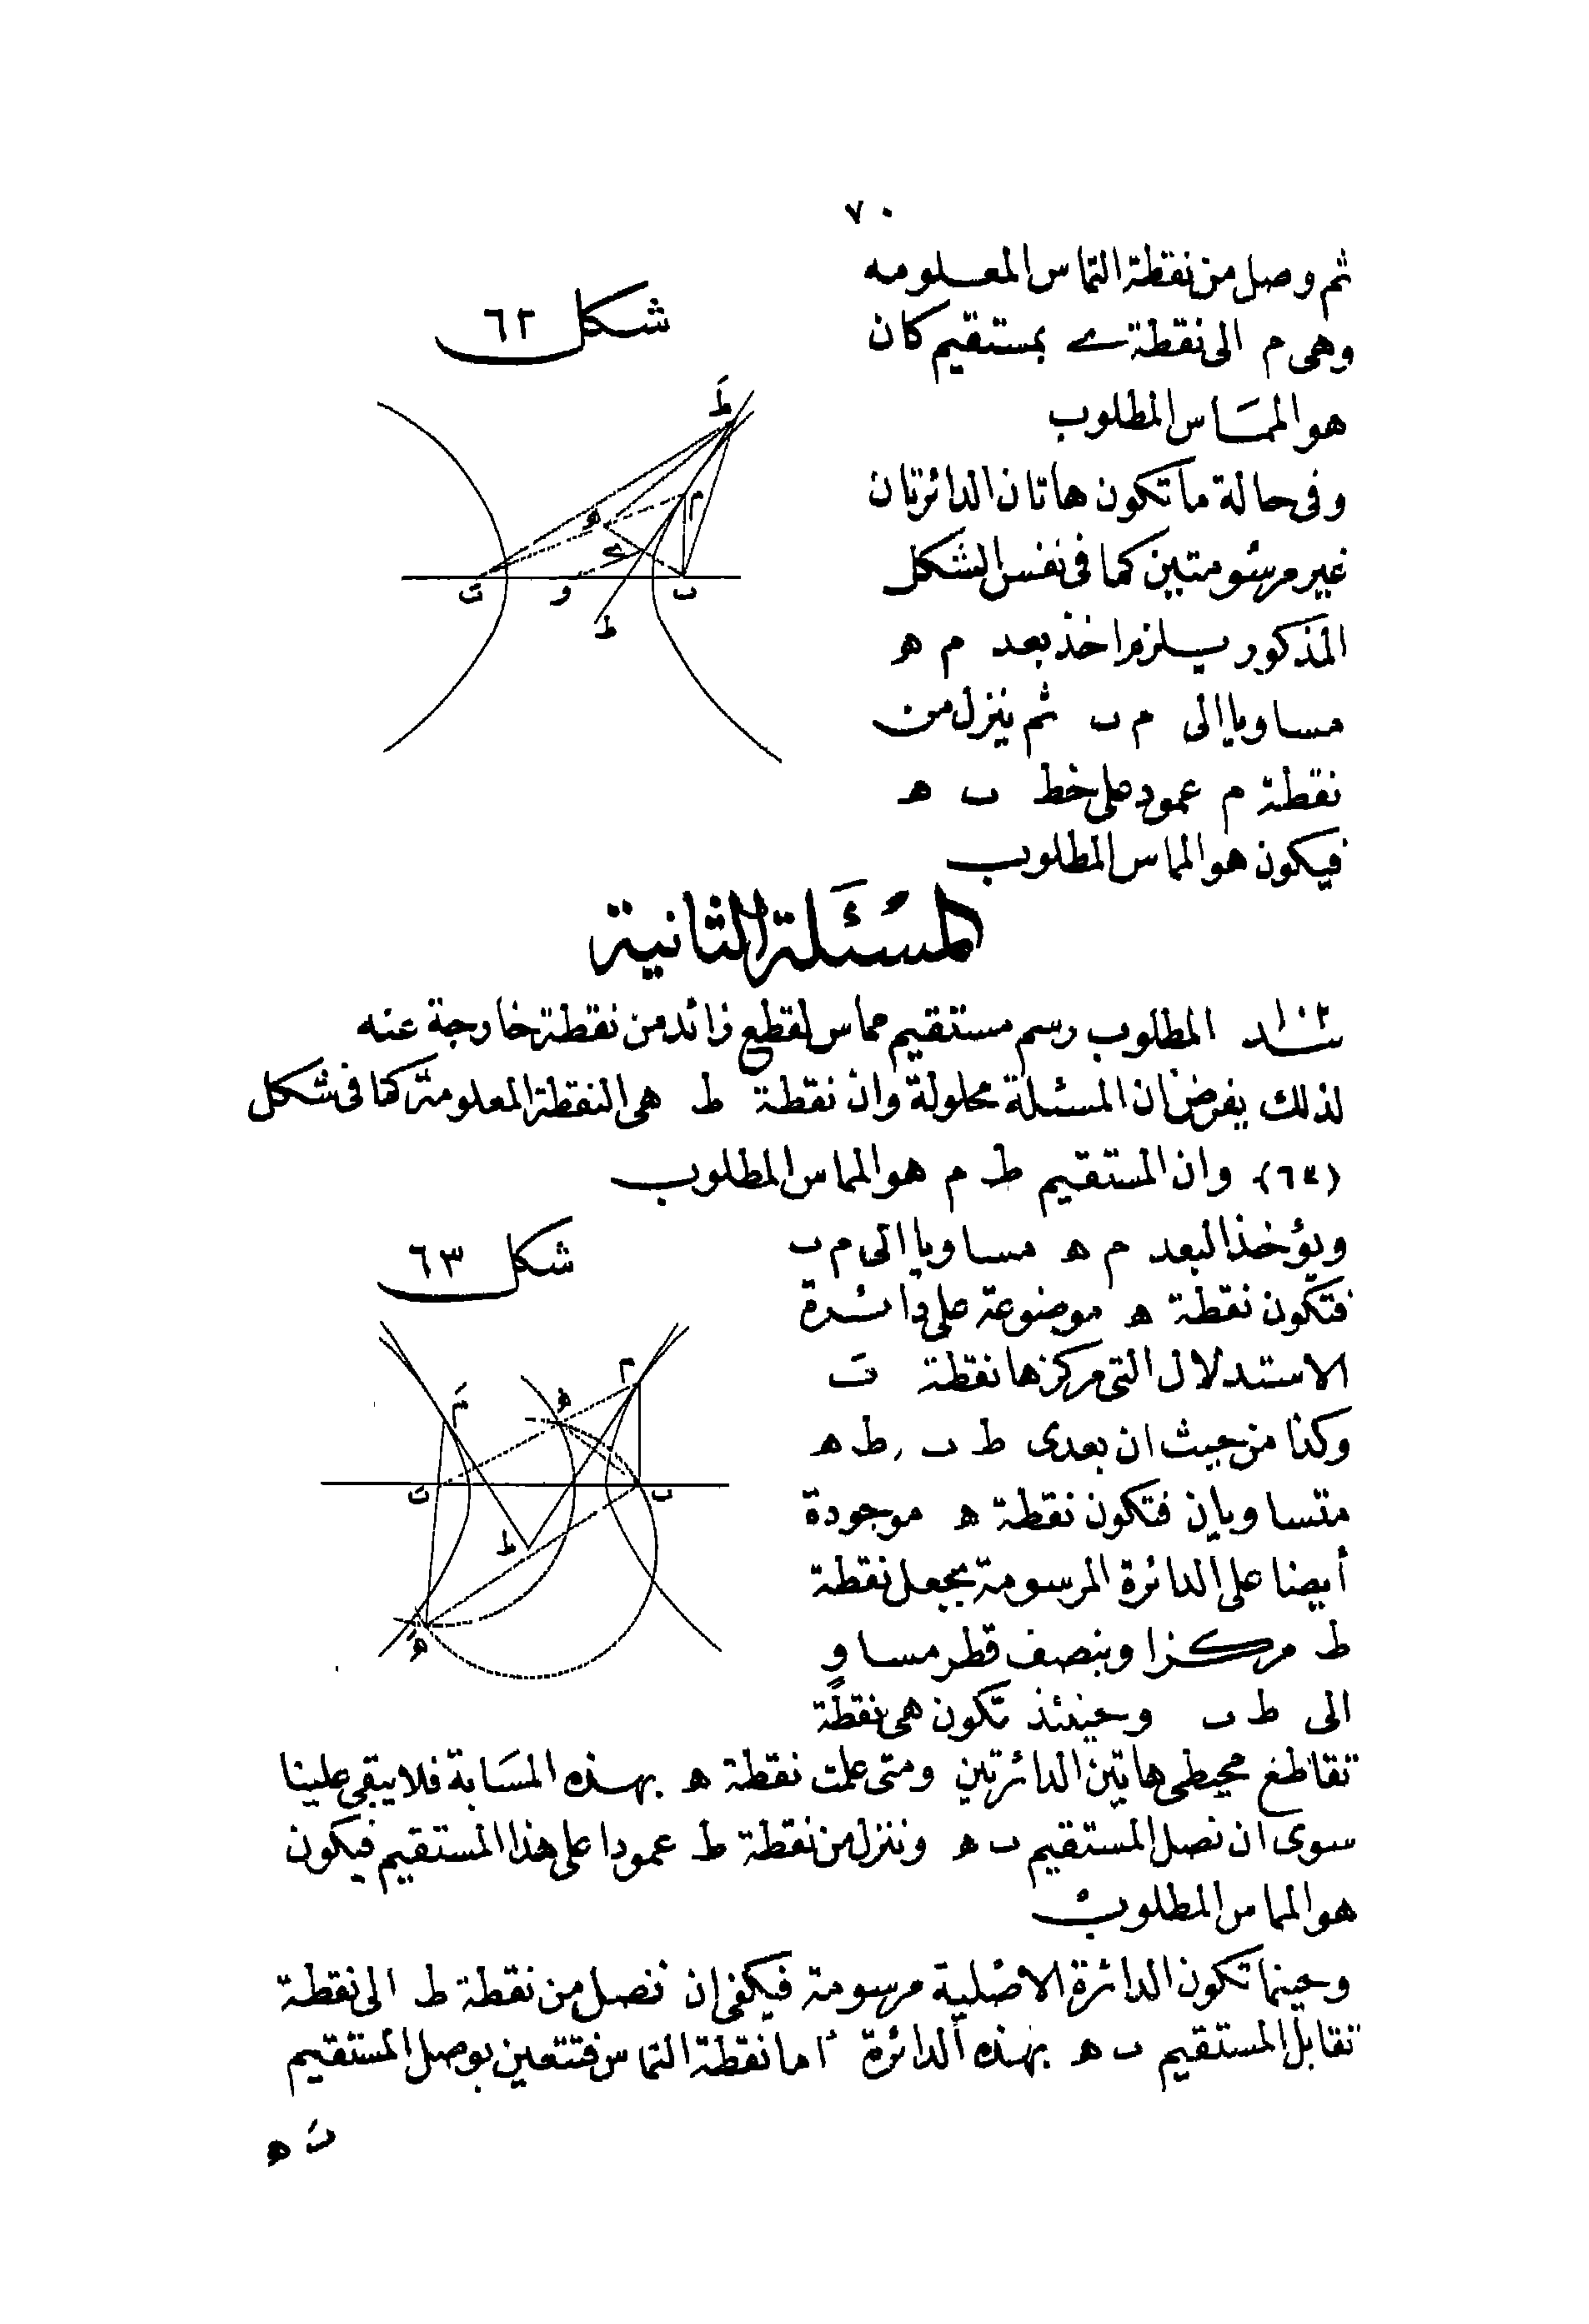 ٧٠
ثم وصل من نقطة التماس المعلومه
وهى م الى نقطة ے بمستقيم كان
هو المماس المطلوب
وفى حالة ما تكون هاتان الدائرتان
غير مرسومتين كما فى نفس الشكل
المذكور يلزم اخذ بعد م ه
مساويا الى م ب ثم ينزل من
نقطة م عمود على خط ب ه
فيكون هو المماس المطلوب
شكل ٦٢
طَ
م
ه
ے
بَ و ب
ط
المسئلة الثانية
المطلوب رسم مستقيم مماس لقطع زائد من نقطة خارجة عنه
لذلك يفرض ان المسئلة محلولة وان نقطة ط هى النقطة المعلومة كما فى شكل
(٦٣) وان المستقيم ط م هو المماس المطلوب
ويؤخذ البعد م ه مساويا الى م ب
فتكون نقطة ه موضوعة على دائرة
الاستدلال التى مركزها نقطة بَ
وكذا من حيث ان بعدى ط ب , ط ه
متساويان فتكون نقطة ه موجودة
أيضا على الدائرة المرسومة بجعل نقطة
ط مركزا وبنصف قطر مساوٍ
الى ط ب وحينئذ تكون هى نقطة
شكل ٦٣
م
مَ
ه
بَ ب
ط
هَ
تقاطع محيطى هاتين الدائرتين ومتى علمت نقطة ه بهذه المثابة فلا يبقى علينا
سوى ان نصل المستقيم ب ه وننزل من نقطة ط عمودا على هذا المستقيم فيكون
هو المماس المطلوب
وحينما تكون الدائرة الاصلية مرسومة فيكفى ان نصل من نقطة ط الى نقطة
تقابل المستقيم ب ه بهذه الدائرة اما نقطة التماس فتتعين بوصل المستقيم
بَ ه